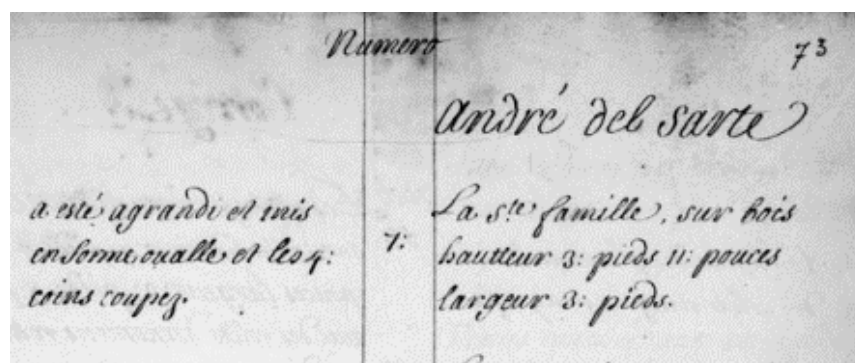 Numero
73
André del sarte
a esté agrandi et mis
en forme ovalle et les 4:
coins coupez.
7:
La ste famille, sur bois
hautteur 3: pieds 11: pouces
largeur 3: pieds.